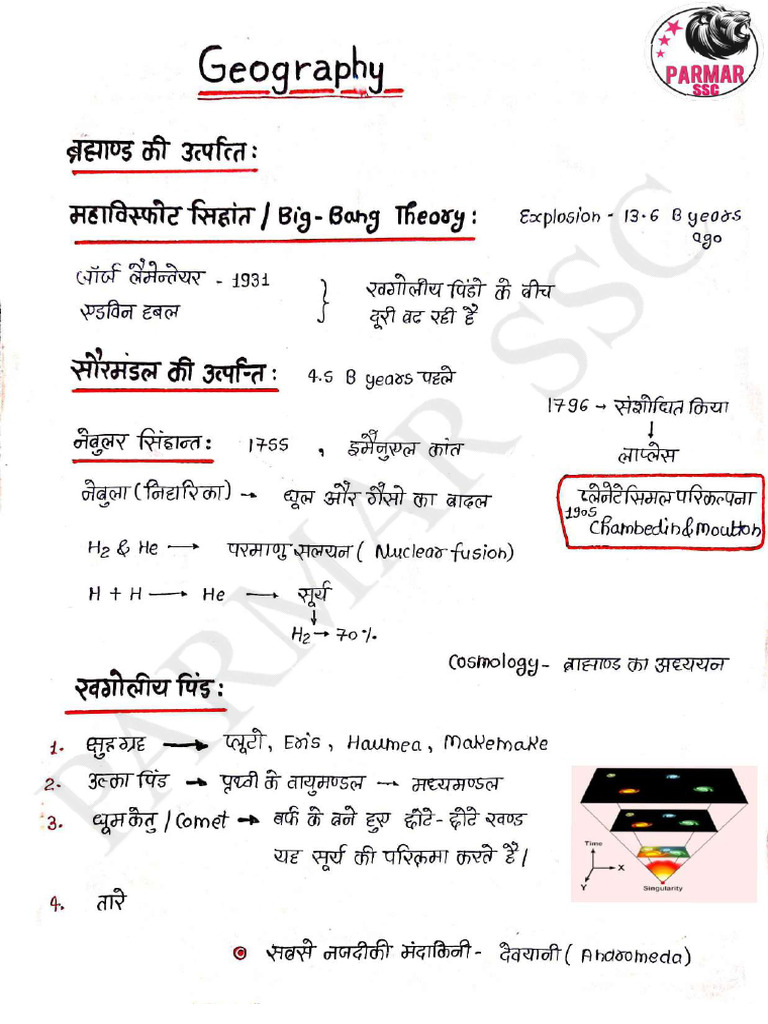 Geography
PARMAR
SSC
ब्रह्माण्ड की उत्पत्ति :
महाविस्फोट सिद्धांत / Big-Bang Theory : Explosion - 13.6 B years ago
जॉर्ज लैमेन्तेयर - 1931
एडविन हबल
खगोलीय पिंडो के बीच
दूरी बढ रही है
सौरमंडल की उत्पत्ति : 4.5 B years पहले
1796 → संशोधित किया
↓
लाप्लेस
नेबुलर सिंद्दान्त : 1755 , इमैनुएल कांत
नेबुला (निहारिका) → धूल और गैसो का बादल
प्लेनेटेसिमल परिकल्पना
1905 Chambedin & Moulton
H2 & He → परमाणु सलयन ( Nuclear fusion)
H + H → He → सूर्य
↓
H2 → 70%
Cosmology - ब्राह्माण्ड का अध्ययन
खगोलीय पिंड :
1. क्षुद्रग्रह → प्लूटो, Eris, Haumea, Makemake
2. उल्का पिंड → पृथ्वी के वायुमण्डल → मध्यमण्डल
3. धूमकेतु / Comet → बर्फ के बने हुए छोटे-छोटे खण्ड
यह सूर्य की परिक्रमा करते हैं।
4. तारे
Time
X
Y
Singularity
सबसे नजदीकी मंदाकिनी - देवयानी ( Andromeda)
PARMAR SSC